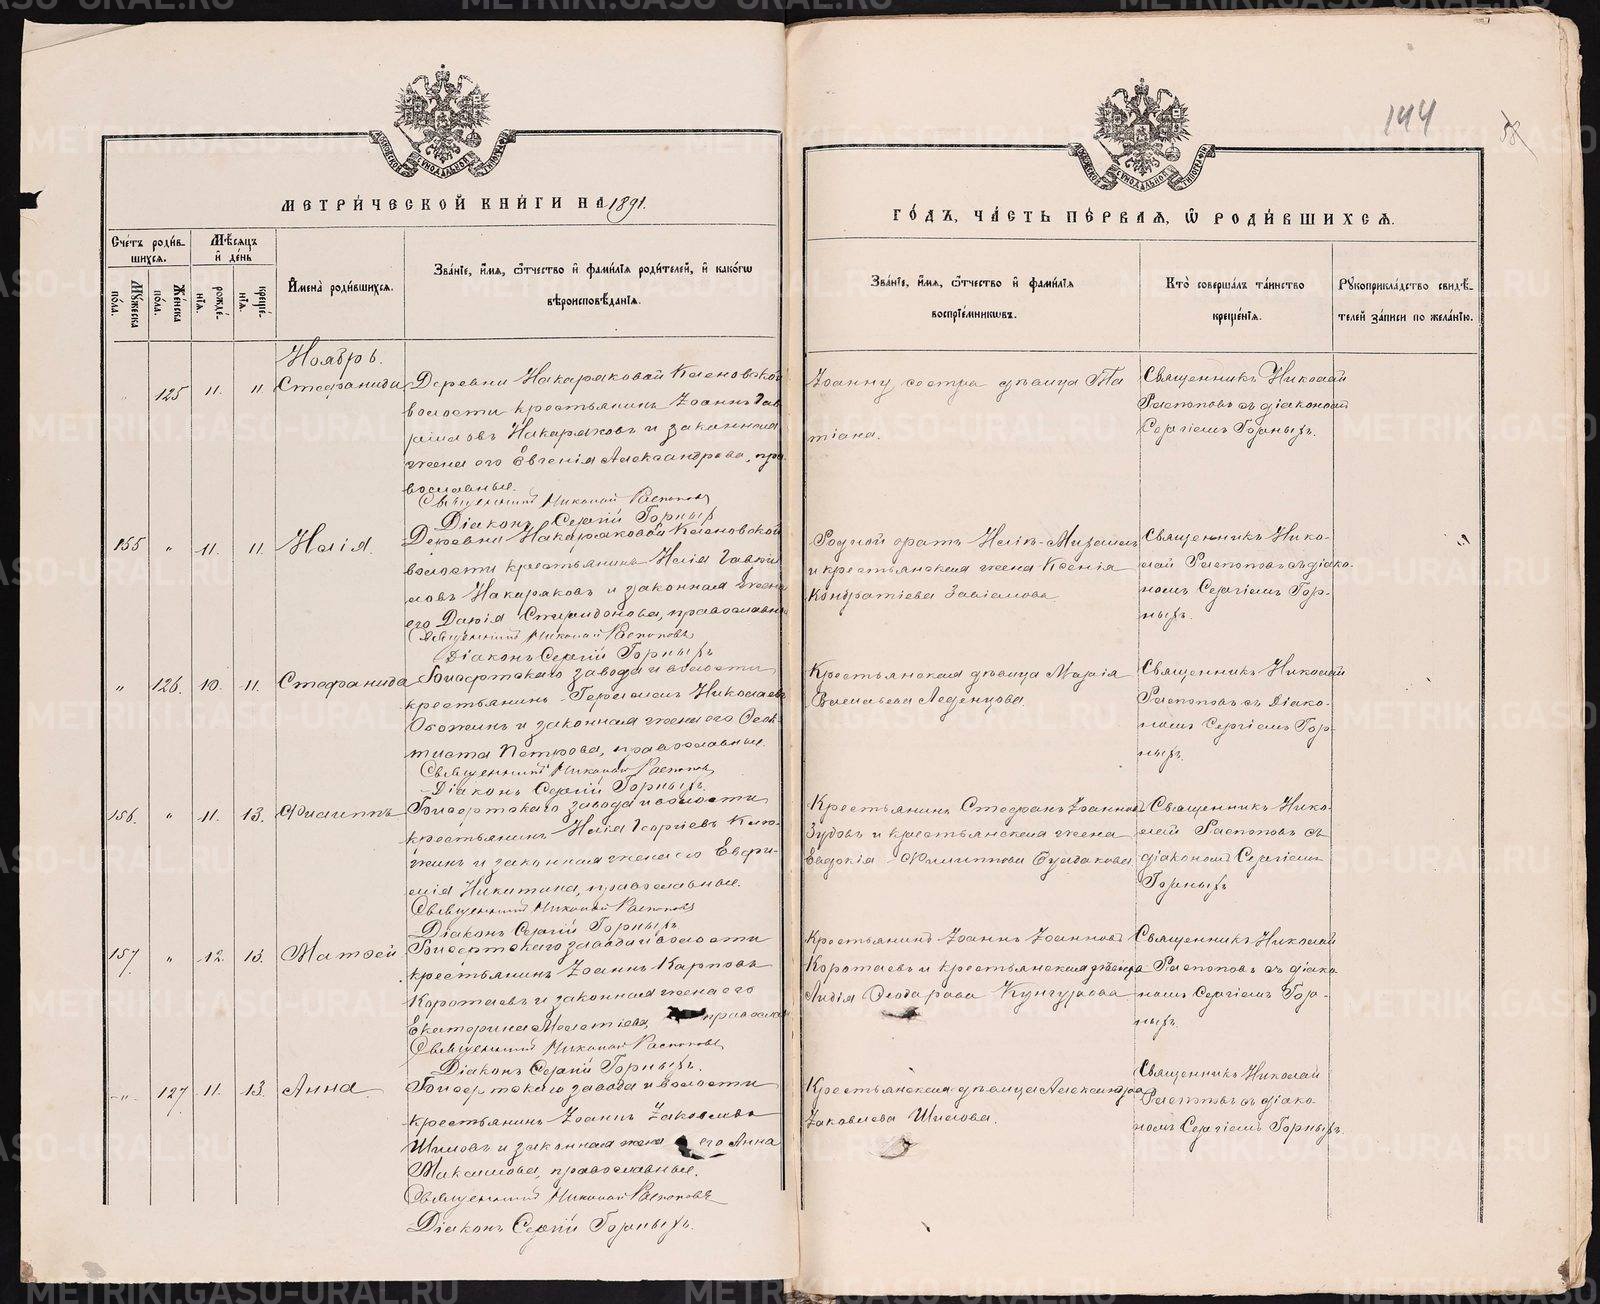 МЕТРИ́ЧЕСКОЙ КНИ́ГИ НА 1891.
ГО́ДЪ, ЧА́СТЬ ПЕ́РВАЯ, Ѿ РОДИ́ВШИХСѦ.
144
58
Сче́тъ роди́в-
шихся.
Мѣ́сяцъ
и҆ де́нь
Мꙋ́жеска
по́ла.
Же́нска
по́ла.
рожде́-
нїѧ.
креще́-
нїѧ.
И҆мена̀ роди́вшихсѧ.
Зва́нїе, и҆́мѧ, ѻ҆́тчество и҆ фами́лїѧ роди́телей, и҆ како́гѡ
вѣроисповѣ́данїѧ.
Зва́нїе, и҆́мѧ, ѻ҆́тчество и҆ фами́лїѧ
воспрїе́мникѡвъ.
Кто̀ соверша́лъ та́инство
креще́нїѧ.
Рꙋкоприкла́дство свидѣ́-
телей за́писи по жела́нїю.
Ноябрь.
„ 125 11. 11. Стефанида
Деревни Накаряковой Кленовской
волости крестьянинъ Іоаннъ Гав-
риловъ Накаряковъ и законная
жена его Евгенія Александрова, пра-
вославные.
Священникъ Николай Распоповъ
Діаконъ Сергій Горныхъ
Іоанну сестра дѣвица Та
тіана.
Священникъ Николай
Распоповъ съ діакономъ
Сергіемъ Горныхъ.
155 „ 11. 11. Илія.
Деревни Накаряковой Кленовской
волости крестьянинъ Илія Гаврі-
ловъ Накаряковъ и законная жена
его Дарія Спиридонова, православные
Священникъ Николай Распоповъ
Діаконъ Сергій Горныхъ
Родной братъ Иліи - Михаилъ
и крестьянская жена Ксенія
Кондратіева Завіалова
Священникъ Нико-
лай Распоповъ съ діако-
номъ Сергіемъ Гор-
ныхъ.
„ 126. 10. 11. Стефанида
Бисертскаго завода и волости
крестьянинъ Николаевъ
и законная жена его
Петрова, православные.
Священникъ Николай Распоповъ
Діаконъ Сергій Горныхъ.
Крестьянская дѣвица Марія
Васильева Леденцова.
Священникъ Николай
Распоповъ съ Діако-
номъ Сергіемъ Гор-
ныхъ.
156. „ 11. 13. Филиппъ
Бисертскаго завода и волости
крестьянинъ Илія Георгіевъ
и законная жена его Евфи-
мія Никитина, православные.
Священникъ Николай Распоповъ
Діаконъ Сергій Горныхъ
Крестьянинъ Стефанъ Іоанновъ
Зудовъ и крестьянская жена
Евдокія Филиппова Булдакова
Священникъ Нико-
лай Распоповъ съ
діакономъ Сергіемъ
Горныхъ
157. „ 12. 13. Матѳей
Бисертскаго завода и волости
крестьянинъ Іоаннъ Карповъ
Коротаевъ и законная жена его
Екатерина Мелетіева, православ
Священникъ Николай Распоповъ
Діаконъ Сергій Горныхъ.
Крестьянинъ Іоаннъ Іоанновъ
Коротаевъ и крестьянская дѣвица
Лидія Ѳеодорова Кунгурова
Священникъ Николай
Распоповъ съ діако
номъ Сергіемъ Гор-
ныхъ.
„ 127. 11. 13. Анна
Бисертскаго завода и волости
крестьянинъ Іоаннъ Іаковлевъ
Шиловъ и законная жена его Анна
Максимова, православные.
Священникъ Николай Распоповъ
Діаконъ Сергій Горныхъ.
Крестьянская дѣвица Александра
Іаковлева Шилова.
Священникъ Николай
Распоповъ съ діако-
номъ Сергіемъ Горныхъ.
METRIKI.GASO-URAL.RU